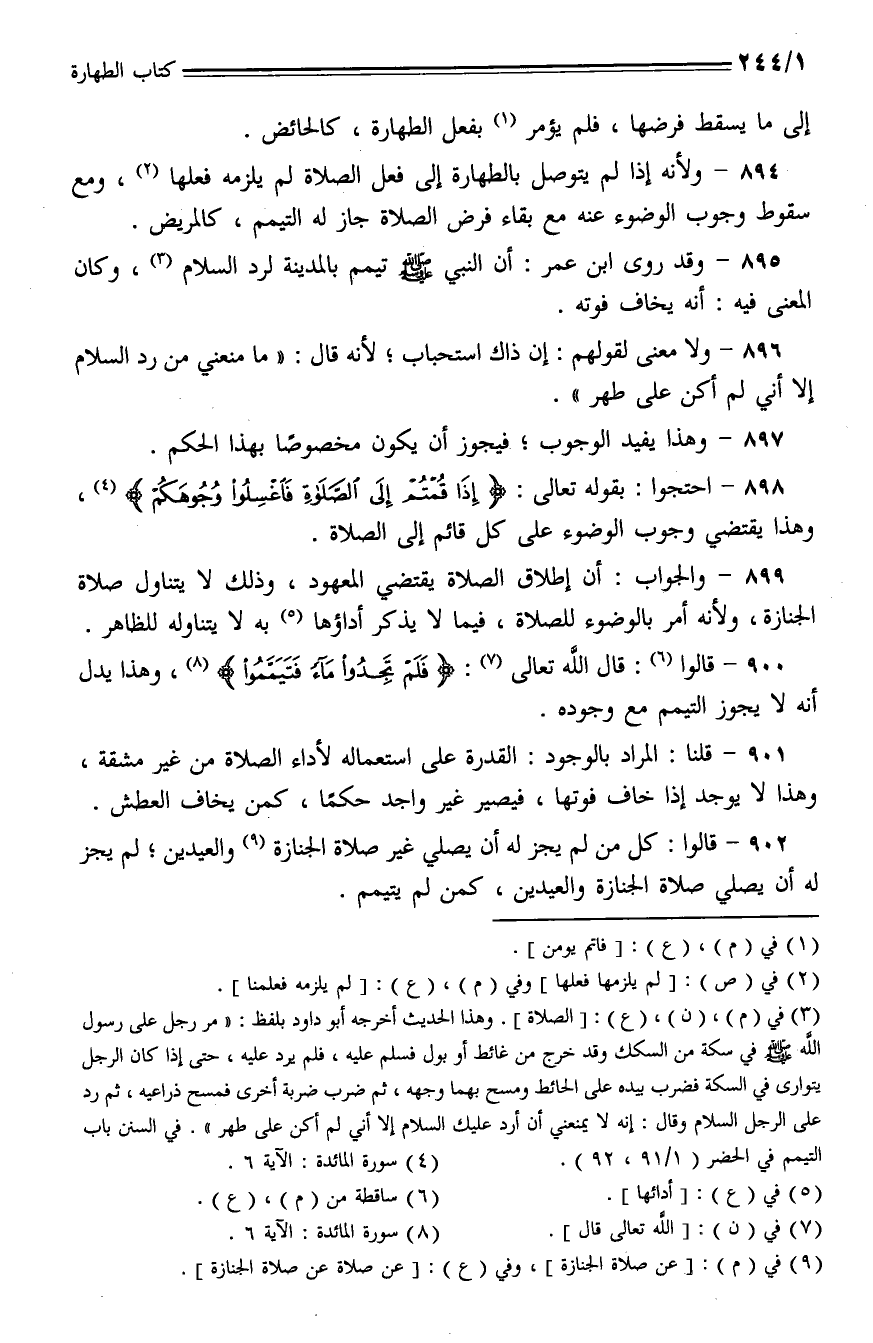 ٢٤٤/١ كتاب الطهارة
إلى ما يسقط فرضها ، فلم يؤمر (١) بفعل الطهارة ، كالحائض .
٨٩٤ - ولأنه إذا لم يتوصل بالطهارة إلى فعل الصلاة لم يلزمه فعلها (٢) ، ومع
سقوط وجوب الوضوء عنه مع بقاء فرض الصلاة جاز له التيمم ، كالمريض .
٨٩٥ - وقد روى ابن عمر : أن النبي ﷺ تيمم بالمدينة لرد السلام (٣) ، وكان
المعنى فيه : أنه يخاف فوته .
٨٩٦ - ولا معنى لقولهم : إن ذاك استحباب ؛ لأنه قال : « ما منعني من رد السلام
إلا أني لم أكن على طهر » .
٨٩٧ - وهذا يفيد الوجوب ؛ فيجوز أن يكون مخصوصًا بهذا الحكم .
٨٩٨ - احتجوا : بقوله تعالى : ﴿ إِذَا قُمْتُمْ إِلَى ٱلصَّلَوٰةِ فَٱغْسِلُوا۟ وُجُوهَكُمْ ﴾ (٤) ،
وهذا يقتضي وجوب الوضوء على كل قائم إلى الصلاة .
٨٩٩ - والجواب : أن إطلاق الصلاة يقتضي المعهود ، وذلك لا يتناول صلاة
الجنازة ، ولأنه أمر بالوضوء للصلاة ، فيما لا يذكر أداؤها (٥) به لا يتناوله للظاهر .
٩٠٠ - قالوا (٦) : قال اللَّه تعالى (٧) : ﴿ فَلَمْ تَجِدُوا۟ مَآءً فَتَيَمَّمُوا۟ ﴾ (٨) ، وهذا يدل
أنه لا يجوز التيمم مع وجوده .
٩٠١ - قلنا : المراد بالوجود : القدرة على استعماله لأداء الصلاة من غير مشقة ،
وهذا لا يوجد إذا خاف فوتها ، فيصير غير واجد حكمًا ، كمن يخاف العطش .
٩٠٢ - قالوا : كل من لم يجز له أن يصلي غير صلاة الجنازة (٩) والعيدين ؛ لم يجز
له أن يصلي صلاة الجنازة والعيدين ، كمن لم يتيمم .
(١) في ( م ) ، ( ع ) : [ فاتم يومن ] .
(٢) في ( ص ) : [ لم يلزمها فعلها ] وفي ( م ) ، ( ع ) : [ لم يلزمه فعلمنا ] .
(٣) في ( م ) ، ( ن ) ، ( ع ) : [ الصلاة ] . وهذا الحديث أخرجه أبو داود بلفظ : « مر رجل على رسول
اللَّه ﷺ في سكة من السكك وقد خرج من غائط أو بول فسلم عليه ، فلم يرد عليه ، حتى إذا كان الرجل
يتوارى في السكة فضرب بيده على الحائط ومسح بهما وجهه ، ثم ضرب ضربة أخرى فمسح ذراعيه ، ثم رد
على الرجل السلام وقال : إنه لا يمنعني أن أرد عليك السلام إلا أني لم أكن على طهر » . في السنن باب
التيمم في الحضر ( ٩١/١ ، ٩٢ ) . (٤) سورة المائدة : الآية ٦ .
(٥) في ( ع ) : [ أدائها ] . (٦) ساقطة من ( م ) ، ( ع ) .
(٧) في ( ن ) : [ اللَّه تعالى قال ] . (٨) سورة المائدة : الآية ٦ .
(٩) في ( م ) : [ عن صلاة الجنازة ] ، وفي ( ع ) : [ عن صلاة عن صلاة الجنازة ] .